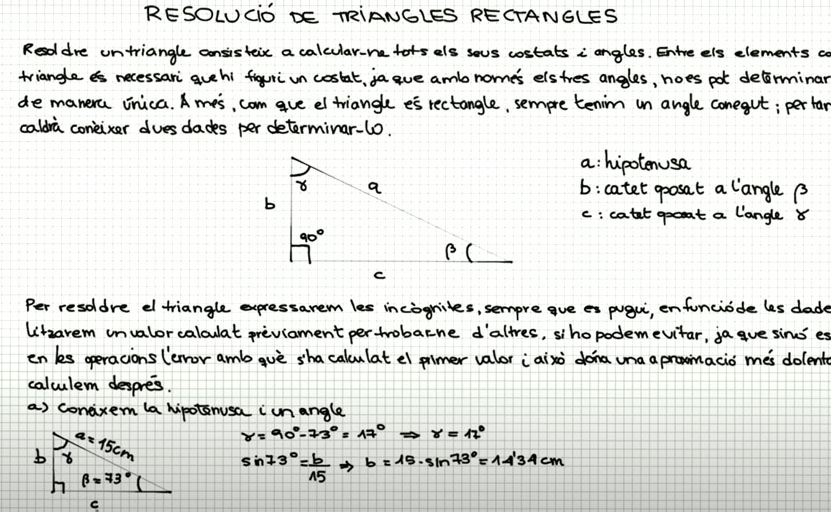 RESOLUCIÓ DE TRIANGLES RECTANGLES
Resoldre un triangle consisteix a calcular-ne tots els seus costats i angles. Entre els elements
triangle és necessari que hi figuri un costat, ja que amb només els tres angles, no es pot determinar
de manera única. A més, com que el triangle és rectangle, sempre tenim un angle conegut; per tan
caldrà conèixer dues dades per determinar-lo.
a: hipotenusa
b: catet oposat a l'angle β
c: catet oposat a l'angle γ
γ
a
b
90°
β
c
Per resoldre el triangle expressarem les incògnites, sempre que es pugui, en funció de les dade
litzarem un valor calculat prèviament per trobar-ne d'altres, si ho podem evitar, ja que sinó es
en les operacions l'error amb què s'ha calculat el primer valor i això dóna una aproximació més dolenta
calculem després.
a) Coneixem la hipotenusa i un angle
γ = 90° - 73° = 17° ⇒ γ = 17°
sin 73° = b/15 ⇒ b = 15 · sin 73° = 14'34 cm
a = 15cm
b
γ
β = 73°
c